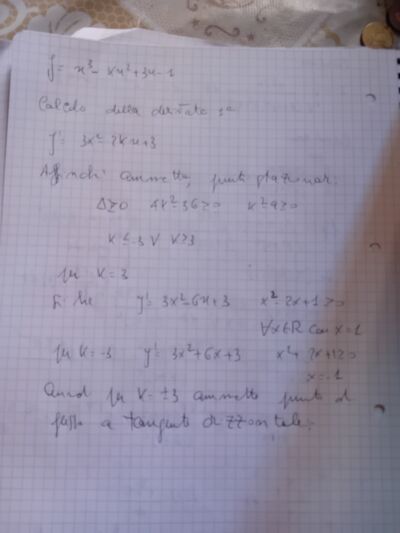 y = x³ - kx² + 3x - 1
Calcolo della derivata 1ª
y' = 3x² - 2kx + 3
Affinché ammetta punti stazionari:
Δ ≥ 0 4k² - 36 ≥ 0 k² - 9 ≥ 0
k ≤ -3 V k ≥ 3
per k = 3
y' = 3x² - 6x + 3 x² - 2x + 1 ≥ 0
∀x∈R con x = 1
per k = -3 y' = 3x² + 6x + 3 x² + 2x + 1 ≥ 0
x = -1
Quindi per k = ±3 ammette punti di
flesso a tangente orizzontale.